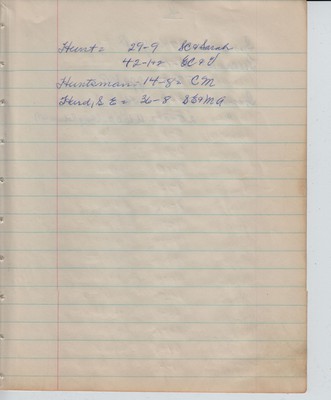 Hunt = 29-9 SC & Sarah
42-10= GC & V
Huntsman. 14-8= CM
Hurd, S E = 36-8 SE & MA